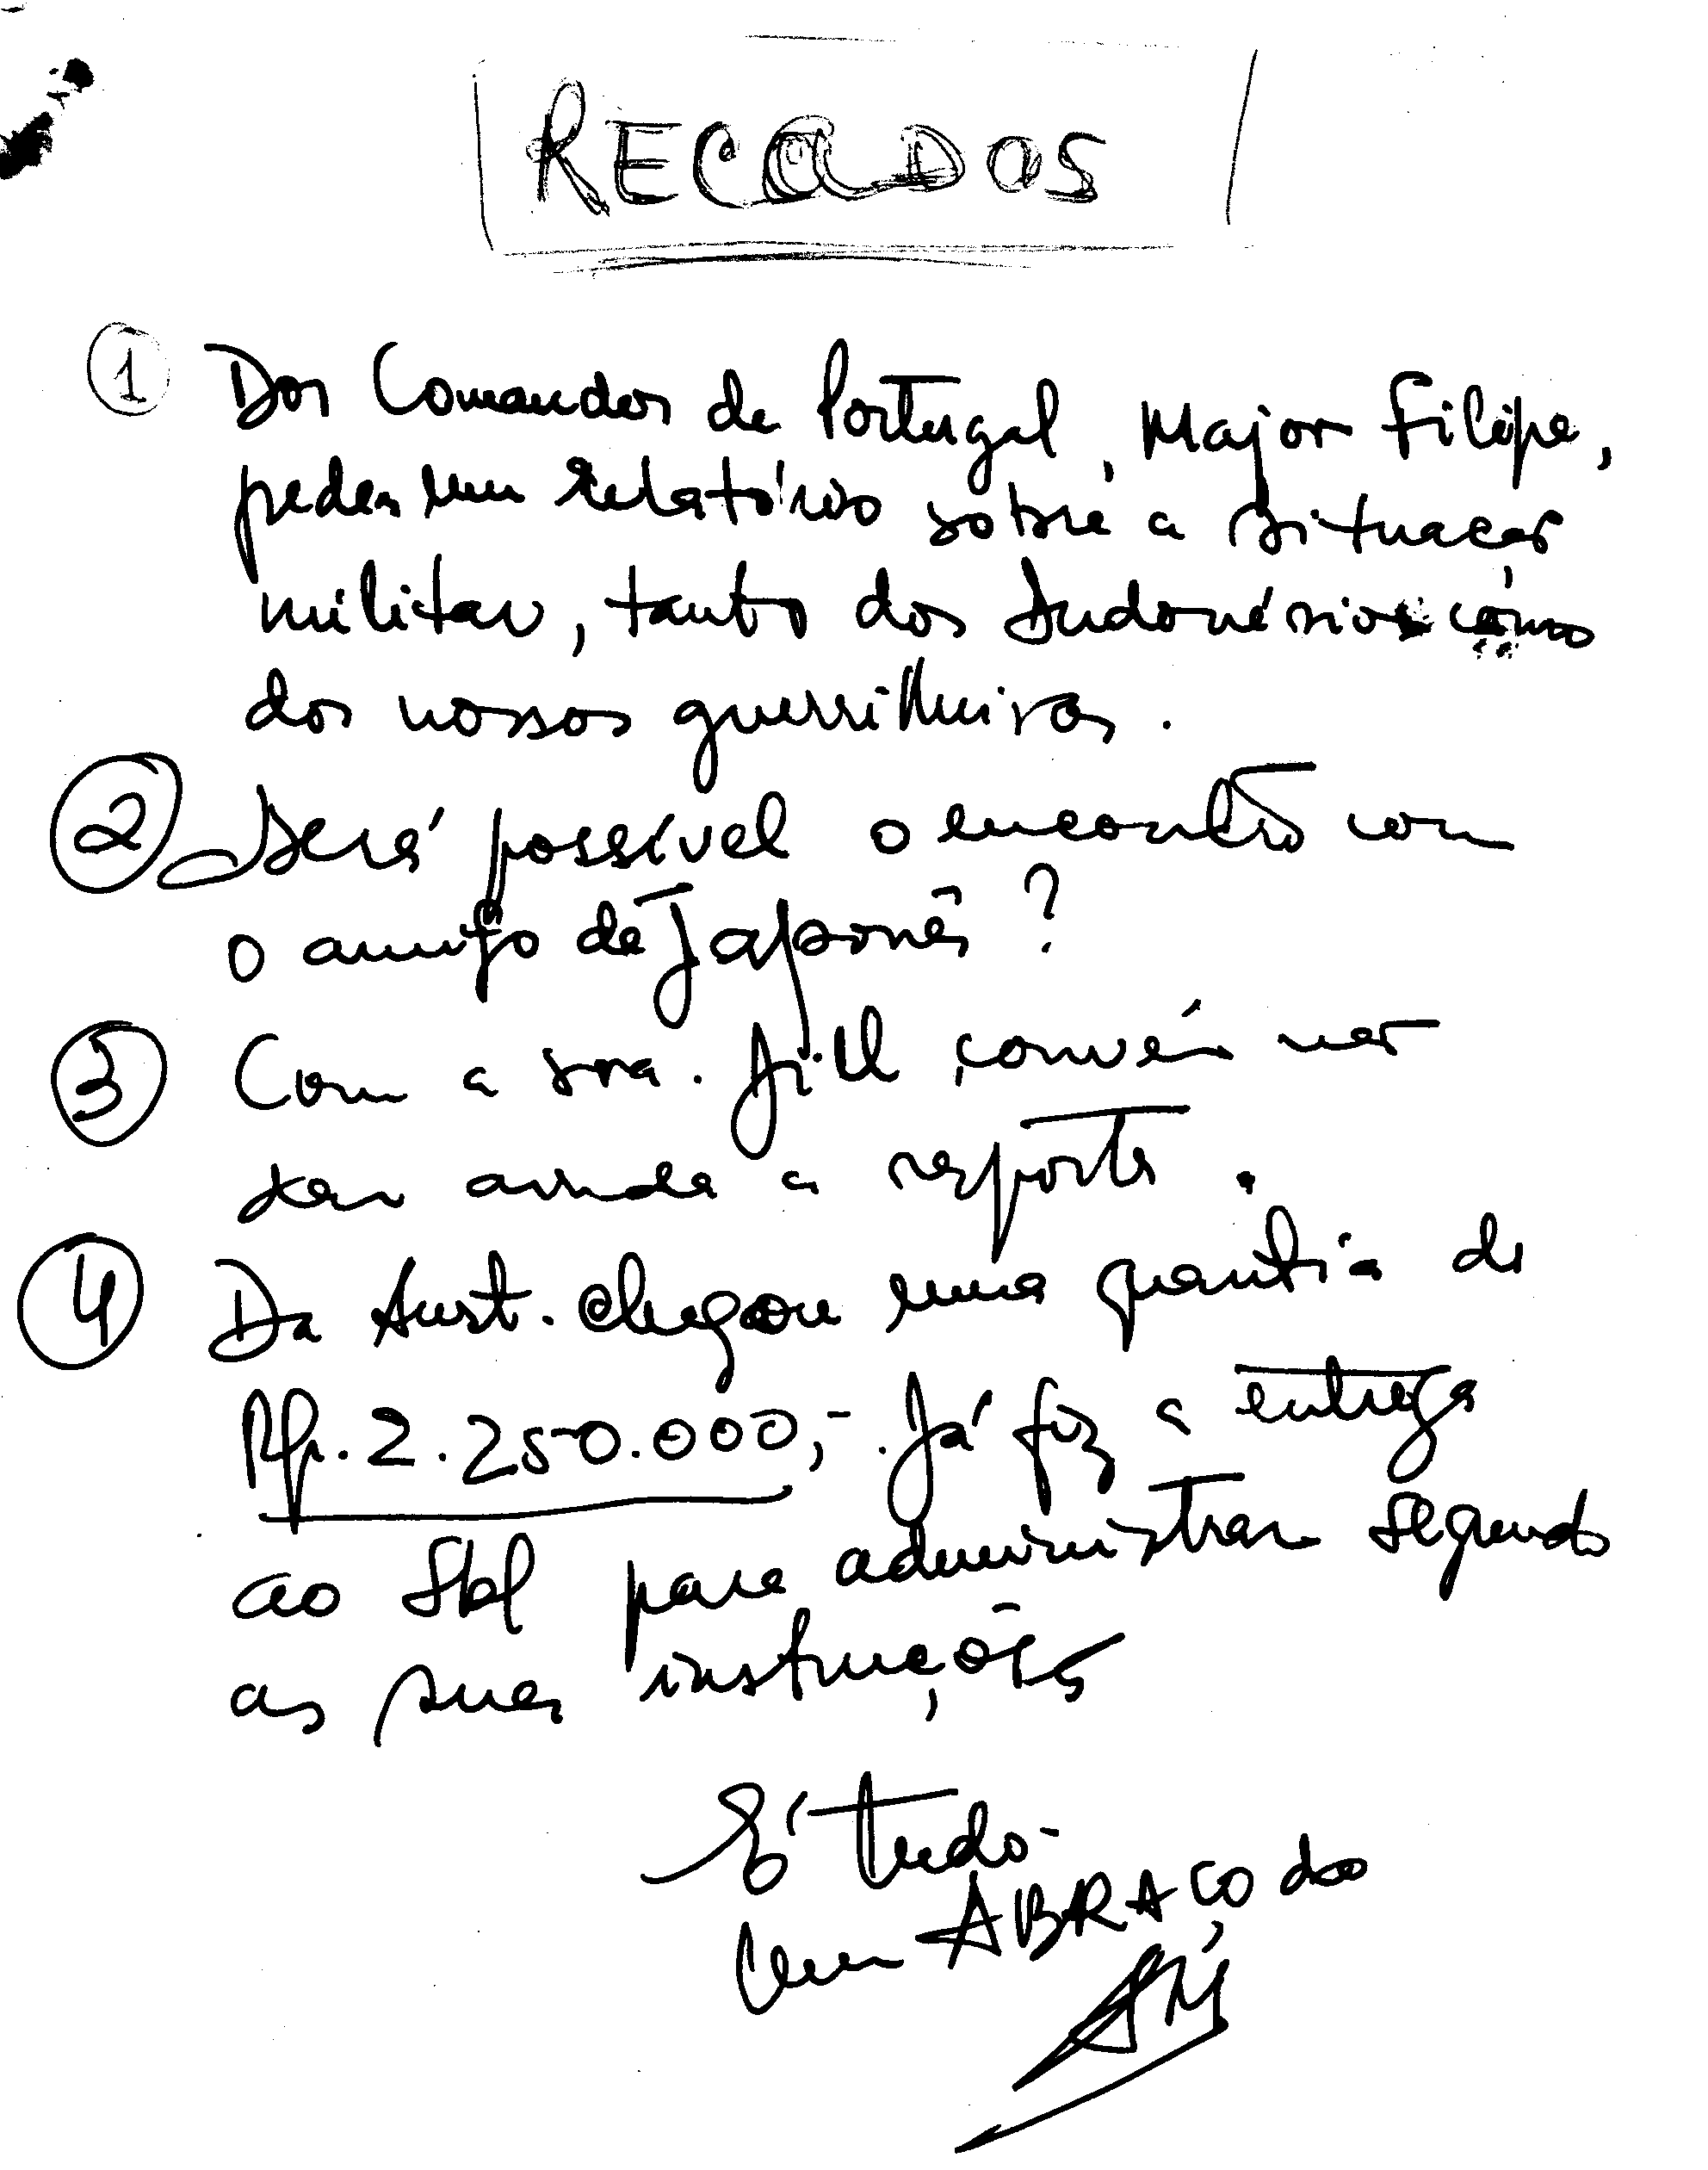 RECADOS
1 Dos Comandos de Portugal, Major Filipe,
pedem um relatório sobre a situação
militar, tanto dos Indonésios como
dos nossos guerrilheiros.
2 Será possível o encontro com
o amigo de Japonês?
3 Com a sra. Jill, convém não
dar ainda a resposta.
4 Da Aust. chegou uma quantia de
Rp. 2.250.000,-. Já fiz a entrega
ao Sbl para administrar segundo
as suas instruções
É tudo.
Um ABRAÇO do